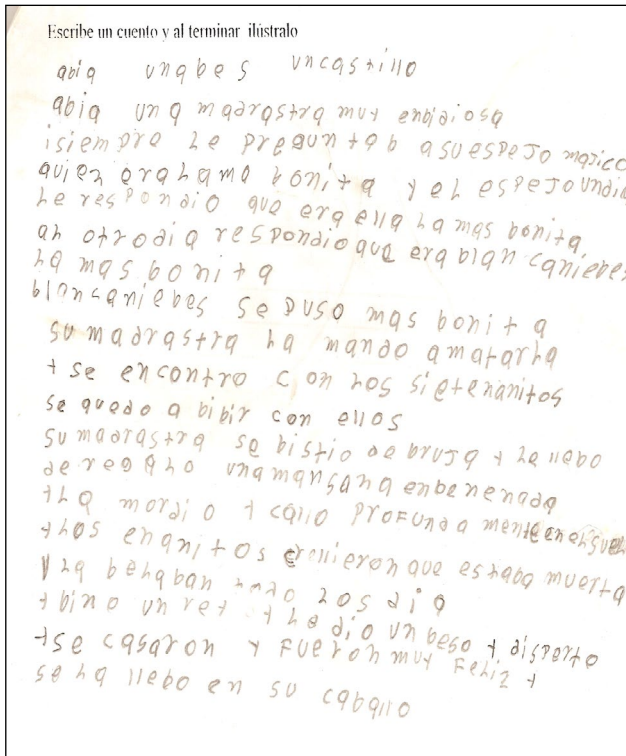 Escribe un cuento y al terminar ilústralo
abia unabes uncastillo
abia una madrastra muy enbidiosa
isiempre le preguntab asuespejo majico
quien eralama bonita y el espejoundia
le respondio que era ella la mas bonita
al otrodia respondioque era blancaniebes
la mas bonita
blancaniebes se puso mas bonita
su madrastra la mando amatarla
y se encontro con los sietenanitos
se quedo a bibir con ellos
sumadrastra se bistio de bruja y le llebo
de regalo unamansana enbenenada
yla mordio y callo profunda mente
ylos enanitos crellieron que estaba muerta
y la belaban los dia
y bino un rey y le dio un beso y disperto
yse casaron y fueron muy feliz y
se la llebo en su caballo